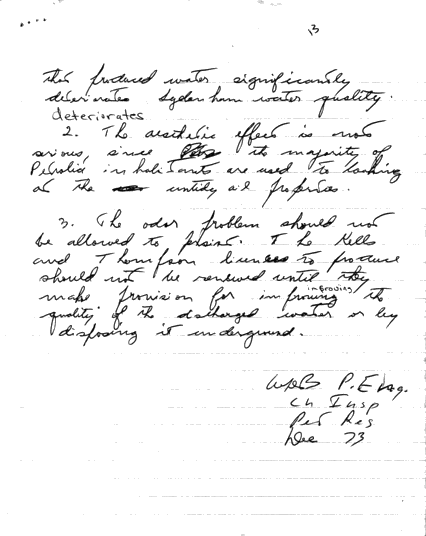 3
the produced water significantly
deteriorates Sydenham water quality.
deteriorates
2. The aesthetic effect is not
serious, since the majority of
Petrolia inhabitants are used to looking
at the untidy oil properties.
3. The odor problem should not
be allowed to persist. The Kells
and Thompson licenses to produce
should not be renewed until they
make provision for improving the
improving
quality of the discharged water or by
disposing it underground.
P. Eng.
Ch Insp
Pet Res
Dec 73